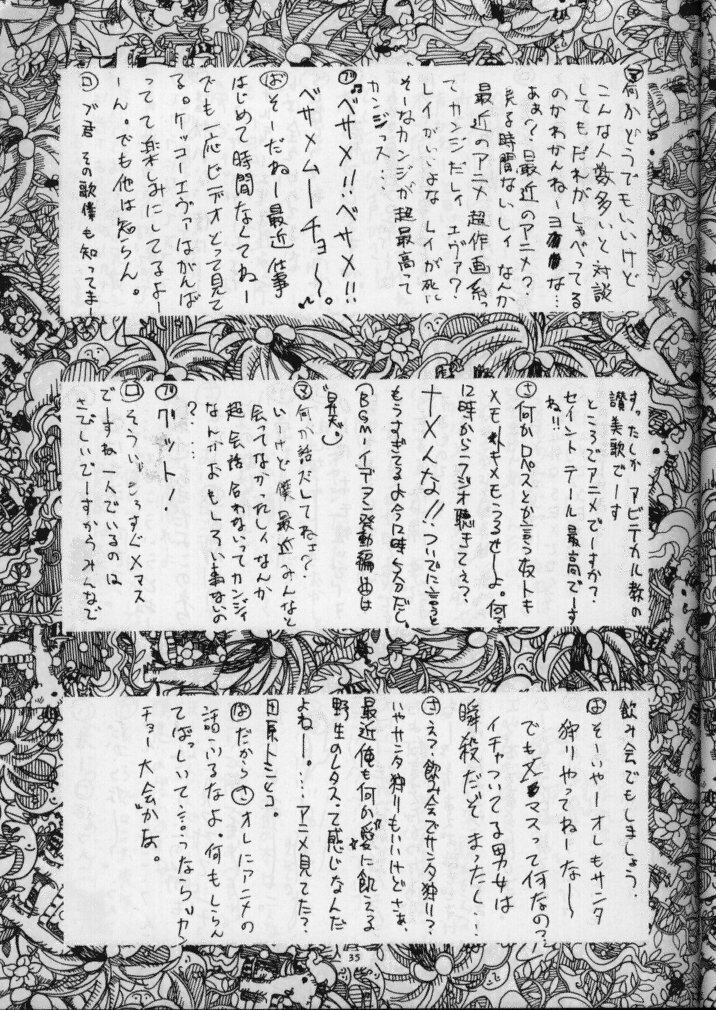 マ 何かどうでもいいけど
こんな人数多いと対談
してもだれがしゃべってる
のかわかんねーヨな…
あぁ？最近のアニメ？
見る時間ないしィなんか
最近のアニメ超作画系っ
てカンジだしィエヴァ？
レイがいいよなレイが死に
そーなカンジが超最高って
カンジっス…
ブ ♫ベサメ!!ベサメ!!
ベサメムーチョ〜。
ば そーだねー最近仕事
はじめて時間なくてねー
でも一応ビデオとって見て
る。ケッコーエヴァはがんば
ってて楽しみにしてるよー
ーん。でも他は知らん。
ロ ブ君その歌僕も知ってまー
すったしかアビテカル教の
讃美歌でーす
ところでアニメでーすか？
セイントテール最高でーす
ね!!
さ 何かロペスとか言う奴トキ
メモトキメモうるせーよ。何？
12時からラジオ聴きてぇ？
ナメんな!!ついでに言うと
もうすぎてるよ今12時
だし。
(BGMーイデアン発動編曲は
マ 何か話だしてねェ？
いーけど僕最近みんなと
会ってなかったしィなんか
超会話合わないってカンジィ
なんかおもしろい事ないの
？…
ブ グット！
ロ そういえもうすぐXマス
でーすね一人でいるのは
さびしいでーすからみんなで
飲み会でもしましょう.
ば そーいやーオレもサンタ
狩りやってねーな〜
でもXマスって何なの？
イチャついてる男女は
瞬殺だぞまったく…
さ え？飲み会でサンタ狩り？
いやサンタ狩りもいいけどさぁ、
最近俺も何か愛に飢える
野生のレタスって感じなんだ
よねー。…アニメ見てた？
田原トシヒコ。
ば だからさオレにアニメの
話ふるなよ。何もしらん
てばっしいて…
チョー大会かな。
35